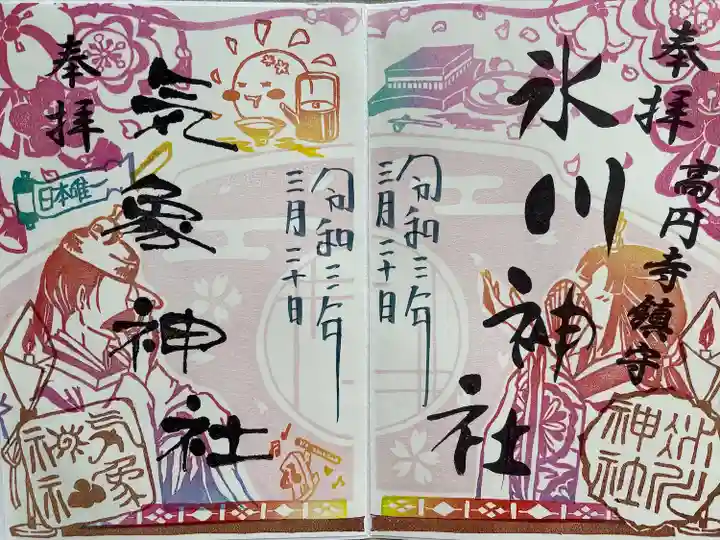 奉拝
高円寺鎮守
氷川神社
令和三年
三月二十日
氷川神社
奉拝
日本唯一
気象神社
令和三年
三月二十日
気象神社